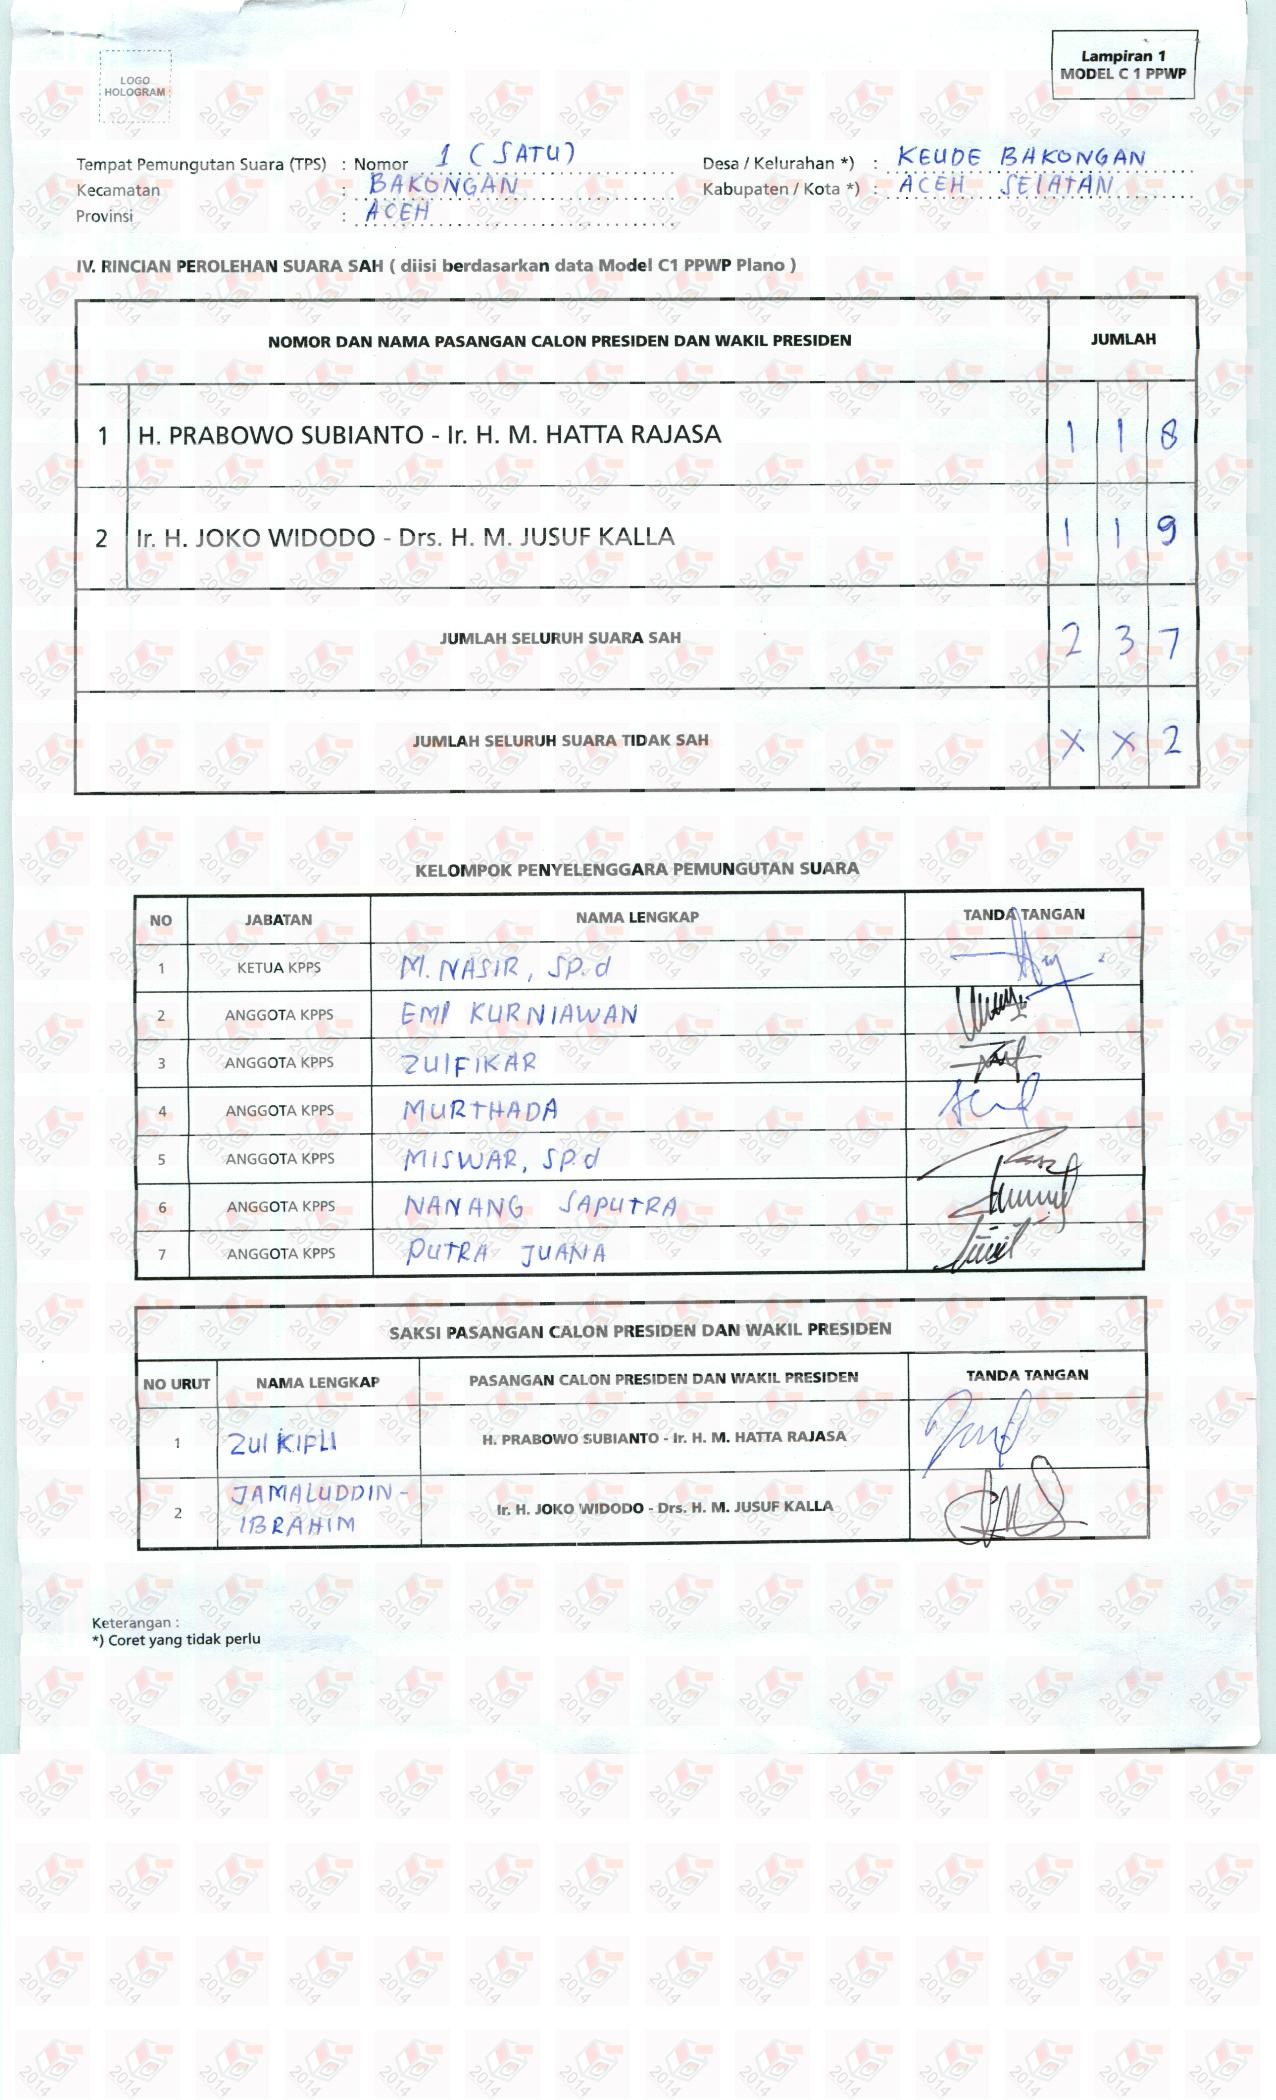 LOGO
HOLOGRAM
Lampiran 1
MODEL C 1 PPWP
Tempat Pemungutan Suara (TPS) : Nomor 1 (SATU) Desa / Kelurahan *) : KEUDE BAKONGAN
Kecamatan : BAKONGAN Kabupaten / Kota *) : ACEH SELATAN
Provinsi : ACEH
IV. RINCIAN PEROLEHAN SUARA SAH ( diisi berdasarkan data Model C1 PPWP Plano )
NOMOR DAN NAMA PASANGAN CALON PRESIDEN DAN WAKIL PRESIDEN JUMLAH
1 H. PRABOWO SUBIANTO - Ir. H. M. HATTA RAJASA 1 1 8
2 Ir. H. JOKO WIDODO - Drs. H. M. JUSUF KALLA 1 1 9
JUMLAH SELURUH SUARA SAH 2 3 7
JUMLAH SELURUH SUARA TIDAK SAH X X 2
KELOMPOK PENYELENGGARA PEMUNGUTAN SUARA
NO JABATAN NAMA LENGKAP TANDA TANGAN
1 KETUA KPPS M. NASIR, SP.d
2 ANGGOTA KPPS EMI KURNIAWAN
3 ANGGOTA KPPS ZULFIKAR
4 ANGGOTA KPPS MURTHADA
5 ANGGOTA KPPS MISWAR, SP.d
6 ANGGOTA KPPS NANANG SAPUTRA
7 ANGGOTA KPPS PUTRA JUANA
SAKSI PASANGAN CALON PRESIDEN DAN WAKIL PRESIDEN
NO URUT NAMA LENGKAP PASANGAN CALON PRESIDEN DAN WAKIL PRESIDEN TANDA TANGAN
1 ZULKIFLI H. PRABOWO SUBIANTO - Ir. H. M. HATTA RAJASA
2 JAMALUDDIN - IBRAHIM Ir. H. JOKO WIDODO - Drs. H. M. JUSUF KALLA
Keterangan :
*) Coret yang tidak perlu